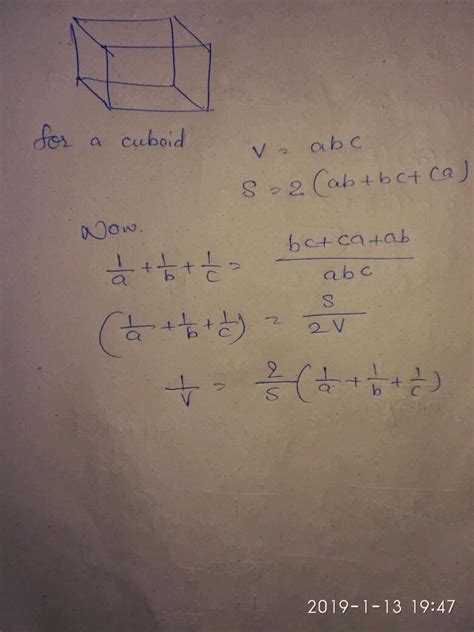 for a cuboid V = abc
S = 2(ab+bc+ca)
Now.
1/a + 1/b + 1/c = (bc+ca+ab)/abc
(1/a + 1/b + 1/c) = S/2V
1/V = 2/S (1/a + 1/b + 1/c)
2019-1-13 19:47